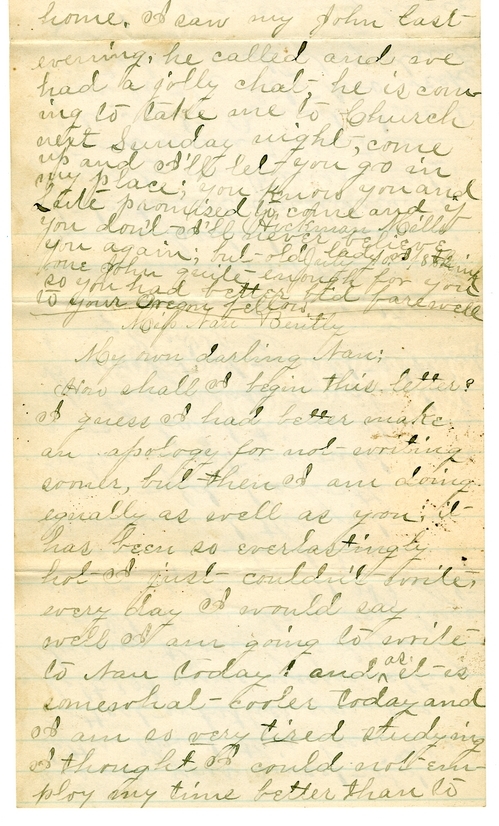 home. I saw my John last
evening; he called and we
had a jolly chat; he is com-
ing to take me to Church
next Sunday night, come
up and I'll let you go in
my place; you know you and
Lute promised to come and if
Hickman Mills
you don't I'll never believe
you again; but old lady I think
one John quite enough for you
so you had better bid farewell
to your Oregon fellow.
Miss Nan Bently
My own darling Nan;
How shall I begin this letter?
I guess I had better make
an apology for not writing
sooner, but then I am doing
equally as well as you; it
has been so everlastingly
hot I just couldn't write,
every day I would say
well I am going to write
to Nan today! and as it is
somewhat cooler today and
I am so very tired studying
I thought I could not em-
ploy my time better than to